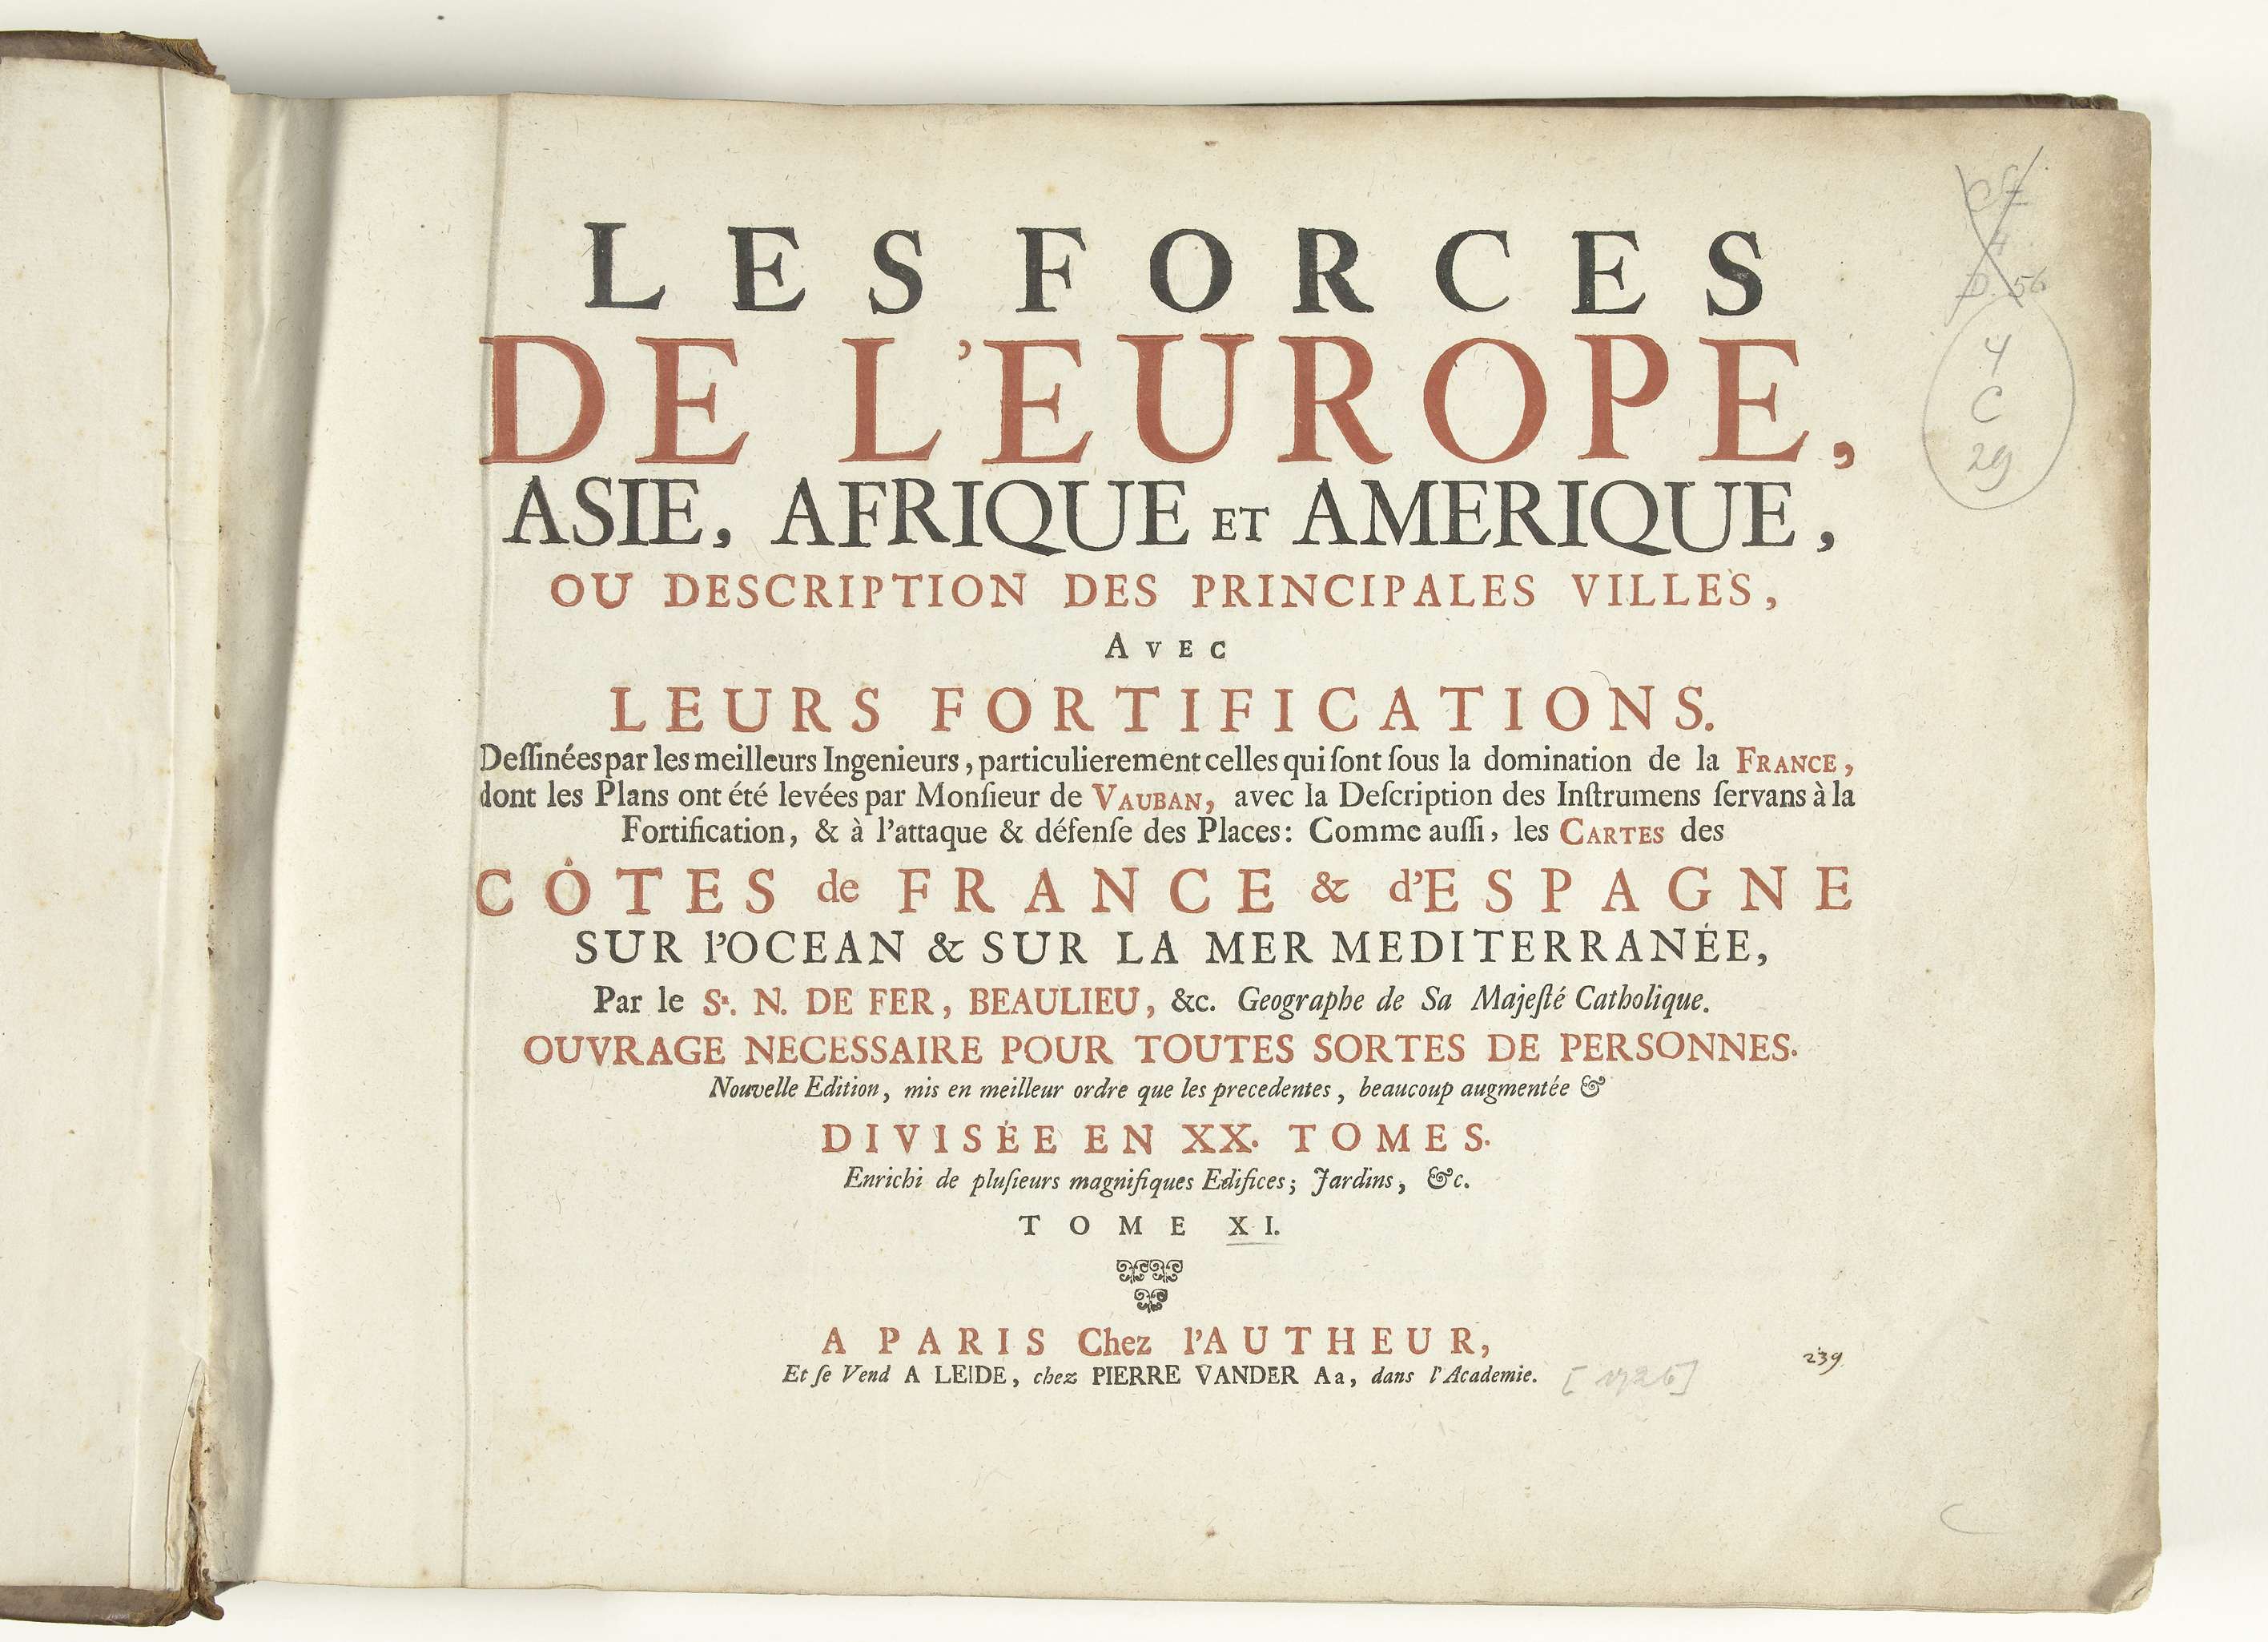 LES FORCES
DE L'EUROPE,
ASIE, AFRIQUE ET AMERIQUE,
OU DESCRIPTION DES PRINCIPALES VILLES,
AVEC
LEURS FORTIFICATIONS.
Deſſinées par les meilleurs Ingenieurs, particulierement celles qui ſont ſous la domination de la FRANCE,
dont les Plans ont été levées par Monſieur de VAUBAN, avec la Deſcription des Inſtrumens ſervans à la
Fortification, & à l'attaque & défenſe des Places: Comme auſſi, les CARTES des
CÔTES de FRANCE & d'ESPAGNE
SUR l'OCEAN & SUR LA MER MEDITERRANÉE,
Par le Sr. N. DE FER, BEAULIEU, &c. Geographe de Sa Majeſté Catholique.
OUVRAGE NECESSAIRE POUR TOUTES SORTES DE PERSONNES.
Nouvelle Edition, mis en meilleur ordre que les precedentes, beaucoup augmentée &
DIVISÉE EN XX. TOMES.
Enrichi de pluſieurs magnifiques Edifices; Jardins, &c.
TOME XI.
A PARIS Chez l'AUTHEUR,
Et ſe Vend A LEIDE, chez PIERRE VANDER Aa, dans l'Academie. [1726]
239
56
4
C
29